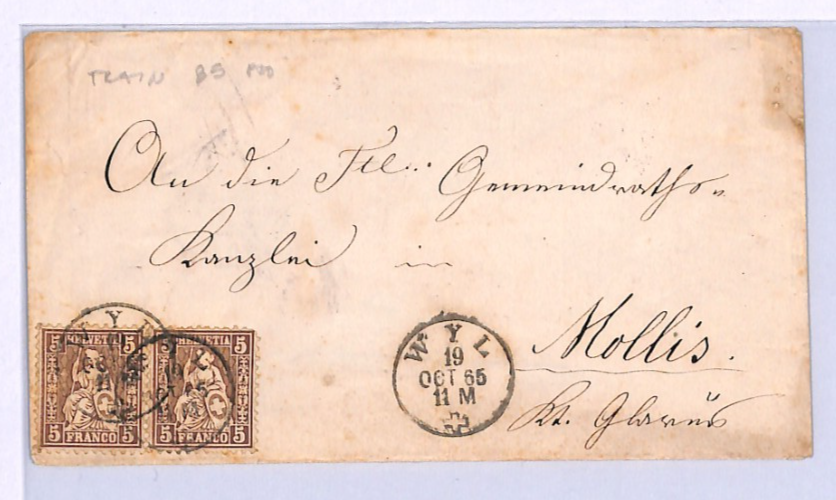 TRAIN 85
An die Ttl.. Gemeindraths-
Kanzlei in
Mollis.
Kt. Glarus
WYL
19
OCT 65
11 M
HELVETIA
5 5
5 FRANCO 5
HELVETIA
5 5
5 FRANCO 5
WYL
WYL